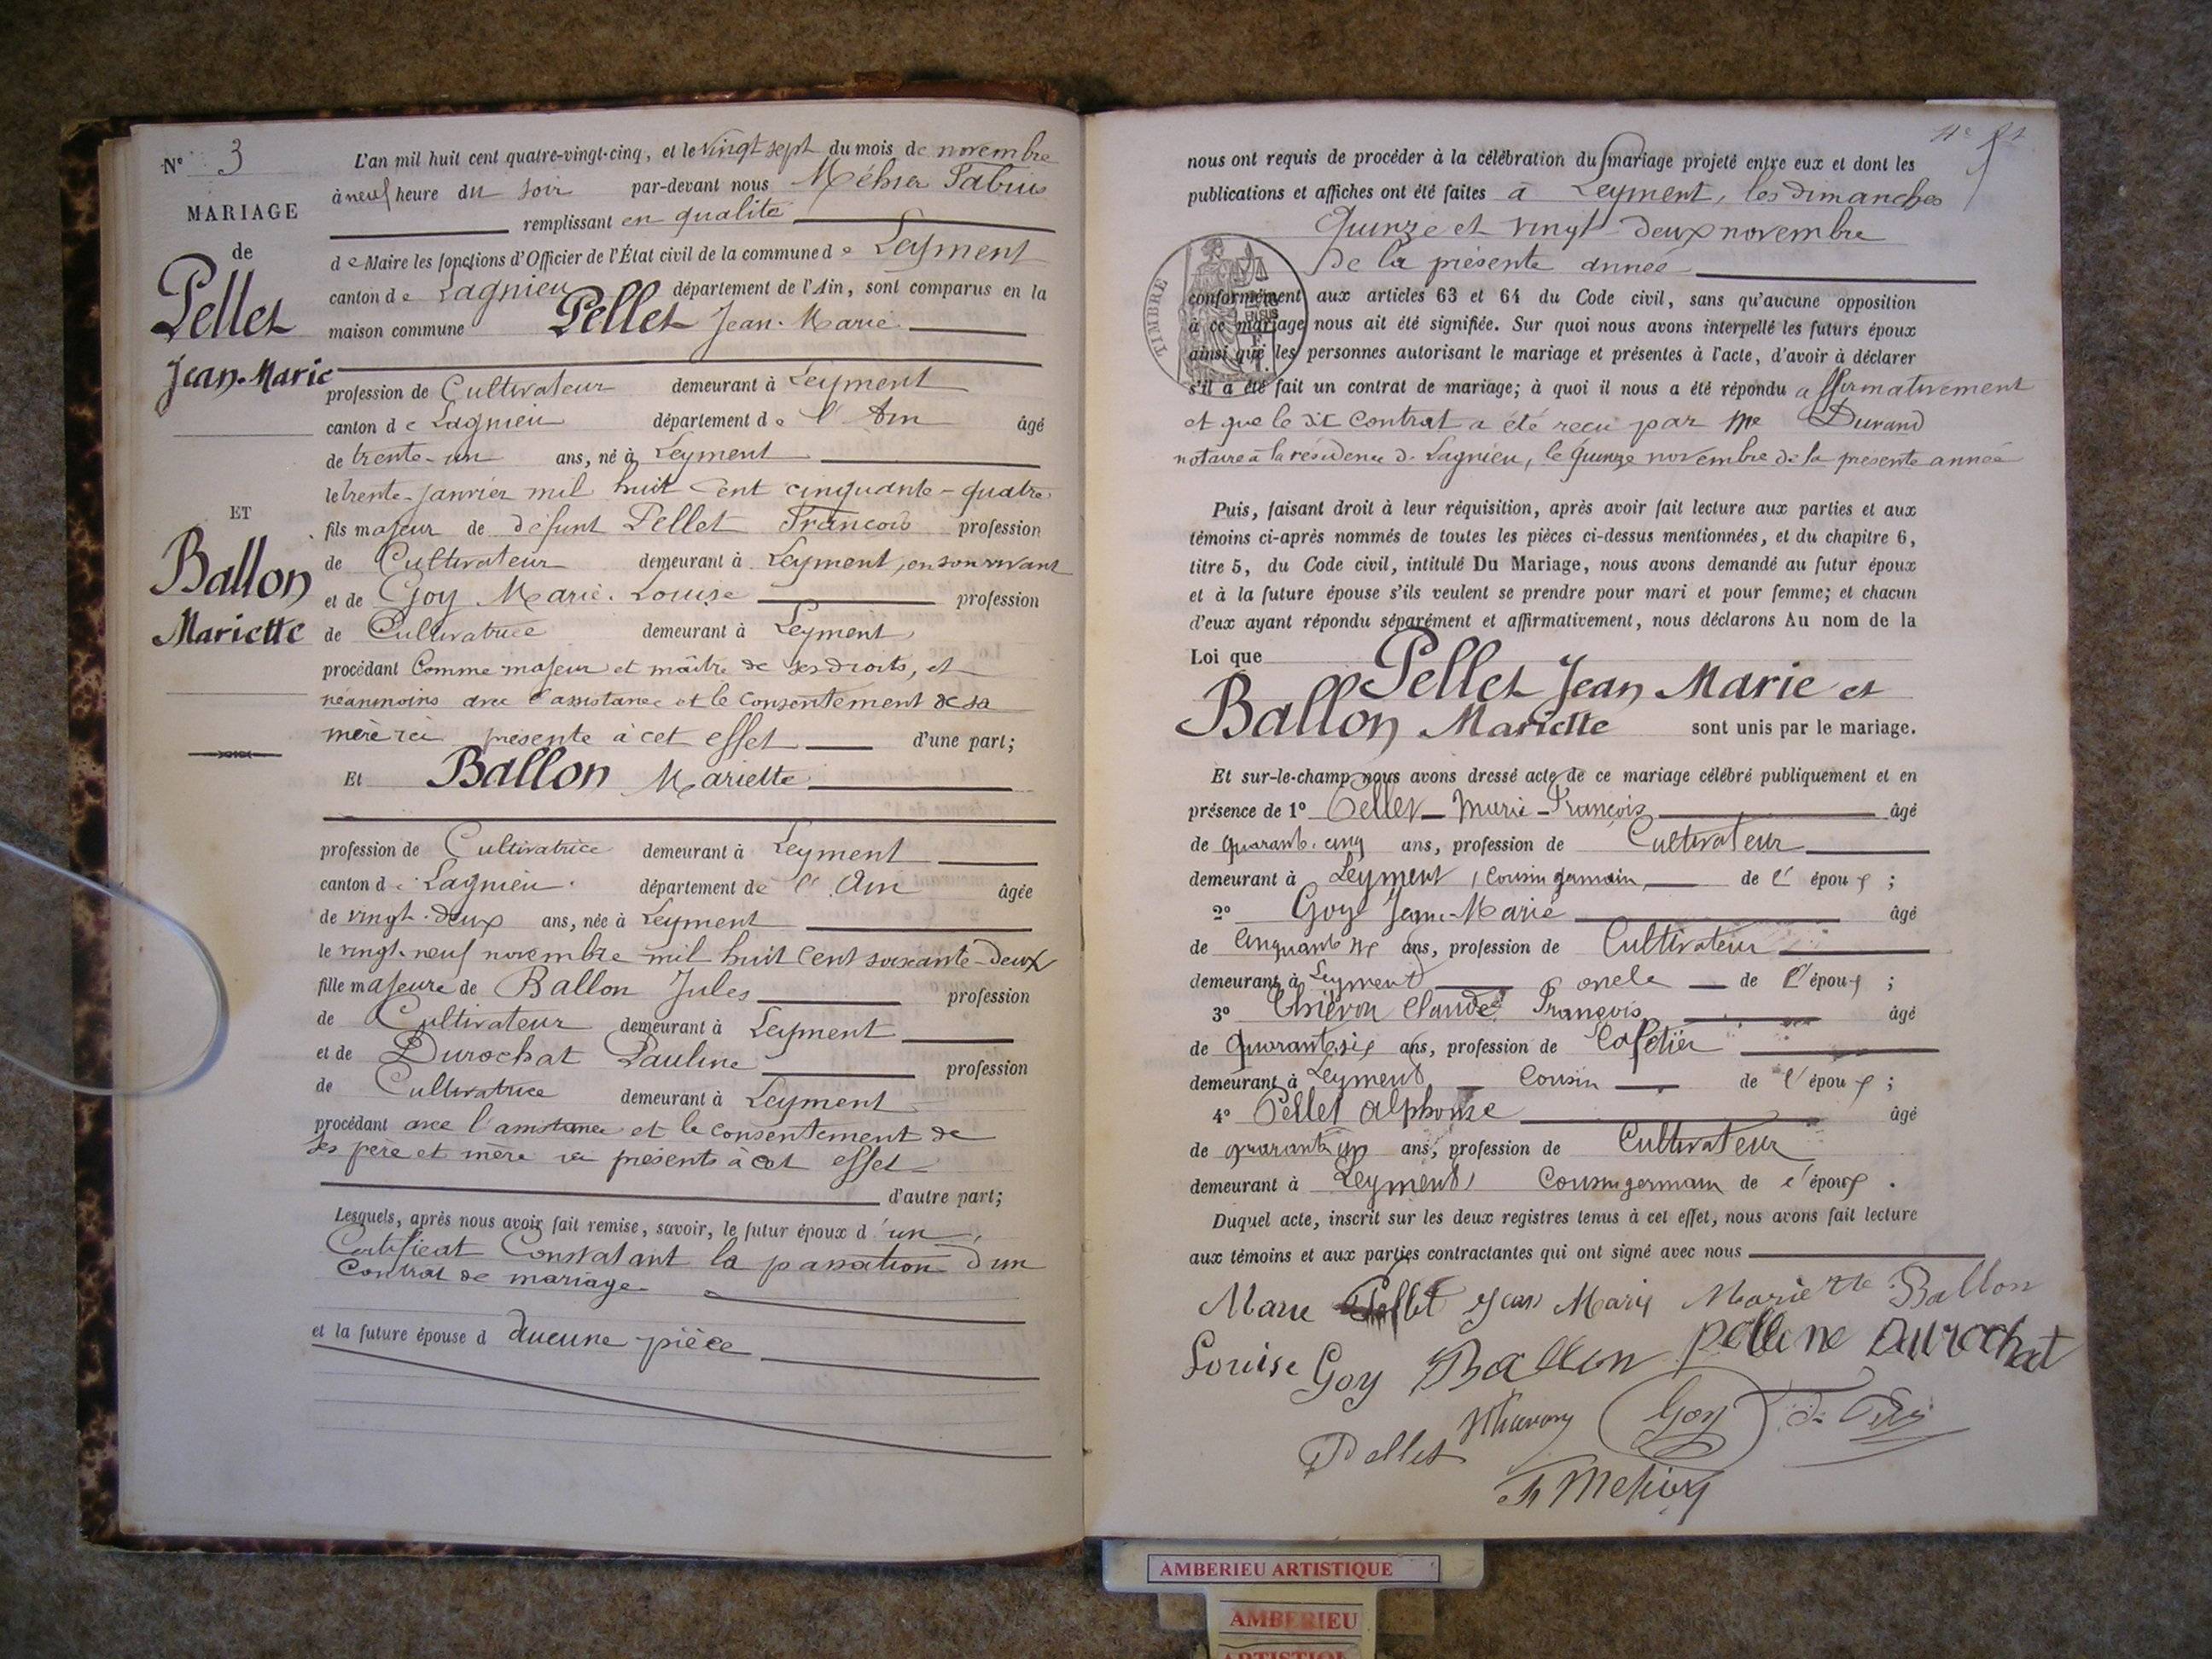 N° 3
MARIAGE
de
Pellet
Jean-Marie
ET
Ballon
Mariette
L'an mil huit cent quatre-vingt-cinq, et le vingt sept du mois de novembre
à neuf heure du soir par-devant nous Méhier Fabius
remplissant en qualité
de Maire les fonctions d'Officier de l'État civil de la commune de Leyment
canton de Lagnieu département de l'Ain, sont comparus en la
maison commune Pellet Jean-Marie
profession de Cultivateur demeurant à Leyment
canton de Lagnieu département de l'Ain âgé
de trente-un ans, né à Leyment
le trente-janvier mil huit cent cinquante-quatre
fils majeur de défunt Pellet François profession
de Cultivateur demeurant à Leyment, en son vivant
et de Goy Marie-Louise profession
de Cultivatrice demeurant à Leyment
procédant Comme majeur et maître de ses droits, et
néanmoins avec l'assistance et le consentement de sa
mère ici présente à cet effet d'une part;
Et Ballon Mariette
profession de Cultivatrice demeurant à Leyment
canton de Lagnieu département de l'Ain âgée
de vingt-deux ans, née à Leyment
le vingt-neuf novembre mil huit cent soixante-deux
fille majeure de Ballon Jules profession
de Cultivateur demeurant à Leyment
et de Durochat Pauline profession
de Cultivatrice demeurant à Leyment
procédant avec l'assistance et le consentement de
ses père et mère ici présents à cet effet
d'autre part;
Lesquels, après nous avoir fait remise, savoir, le futur époux d'un
Certificat Constatant la passation d'un
Contrat de mariage
et la future épouse d aucune pièce
nous ont requis de procéder à la célébration du mariage projeté entre eux et dont les
publications et affiches ont été faites à Leyment, les dimanches
Quinze et vingt-deux novembre
De la présente année
TIMBRE
conformément aux articles 63 et 64 du Code civil, sans qu'aucune opposition
à ce mariage nous ait été signifiée. Sur quoi nous avons interpellé les futurs époux
ainsi que les personnes autorisant le mariage et présentes à l'acte, d'avoir à déclarer
s'il a été fait un contrat de mariage; à quoi il nous a été répondu affirmativement
et que le dit Contrat a été recu par Me Durand
notaire à la résidence de Lagnieu, le quinze novembre de la présente année
Puis, faisant droit à leur réquisition, après avoir fait lecture aux parties et aux
témoins ci-après nommés de toutes les pièces ci-dessus mentionnées, et du chapitre 6,
titre 5, du Code civil, intitulé Du Mariage, nous avons demandé au futur époux
et à la future épouse s'ils veulent se prendre pour mari et pour femme; et chacun
d'eux ayant répondu séparément et affirmativement, nous déclarons Au nom de la
Loi que Pellet Jean Marie et
Ballon Mariette sont unis par le mariage.
Et sur-le-champ nous avons dressé acte de ce mariage célébré publiquement et en
présence de 1° Pellet-Marie-François âgé
de quarante-cinq ans, profession de Cultivateur
demeurant à Leyment, Cousin germain de l'époux;
2° Goy Jean-Marie âgé
de Cinquante ans, profession de Cultivateur
demeurant à Leyment oncle de l'époux;
3° Thiévon Claude François âgé
de Quarante six ans, profession de Cafetier
demeurant à Leyment Cousin de l'époux;
4° Pellet Alphonse âgé
de quarante un ans, profession de Cultivateur
demeurant à Leyment, Cousin germain de l'époux.
Duquel acte, inscrit sur les deux registres tenus à cet effet, nous avons fait lecture
aux témoins et aux parties contractantes qui ont signé avec nous
Marie Pellet Jean Marie Mariette Ballon
Louise Goy Ballon pollene Durochat
Pellet Thievon Goy
F Mehier
AMBERIEU ARTISTIQUE
AMBERIEU
ARTISTIQUE